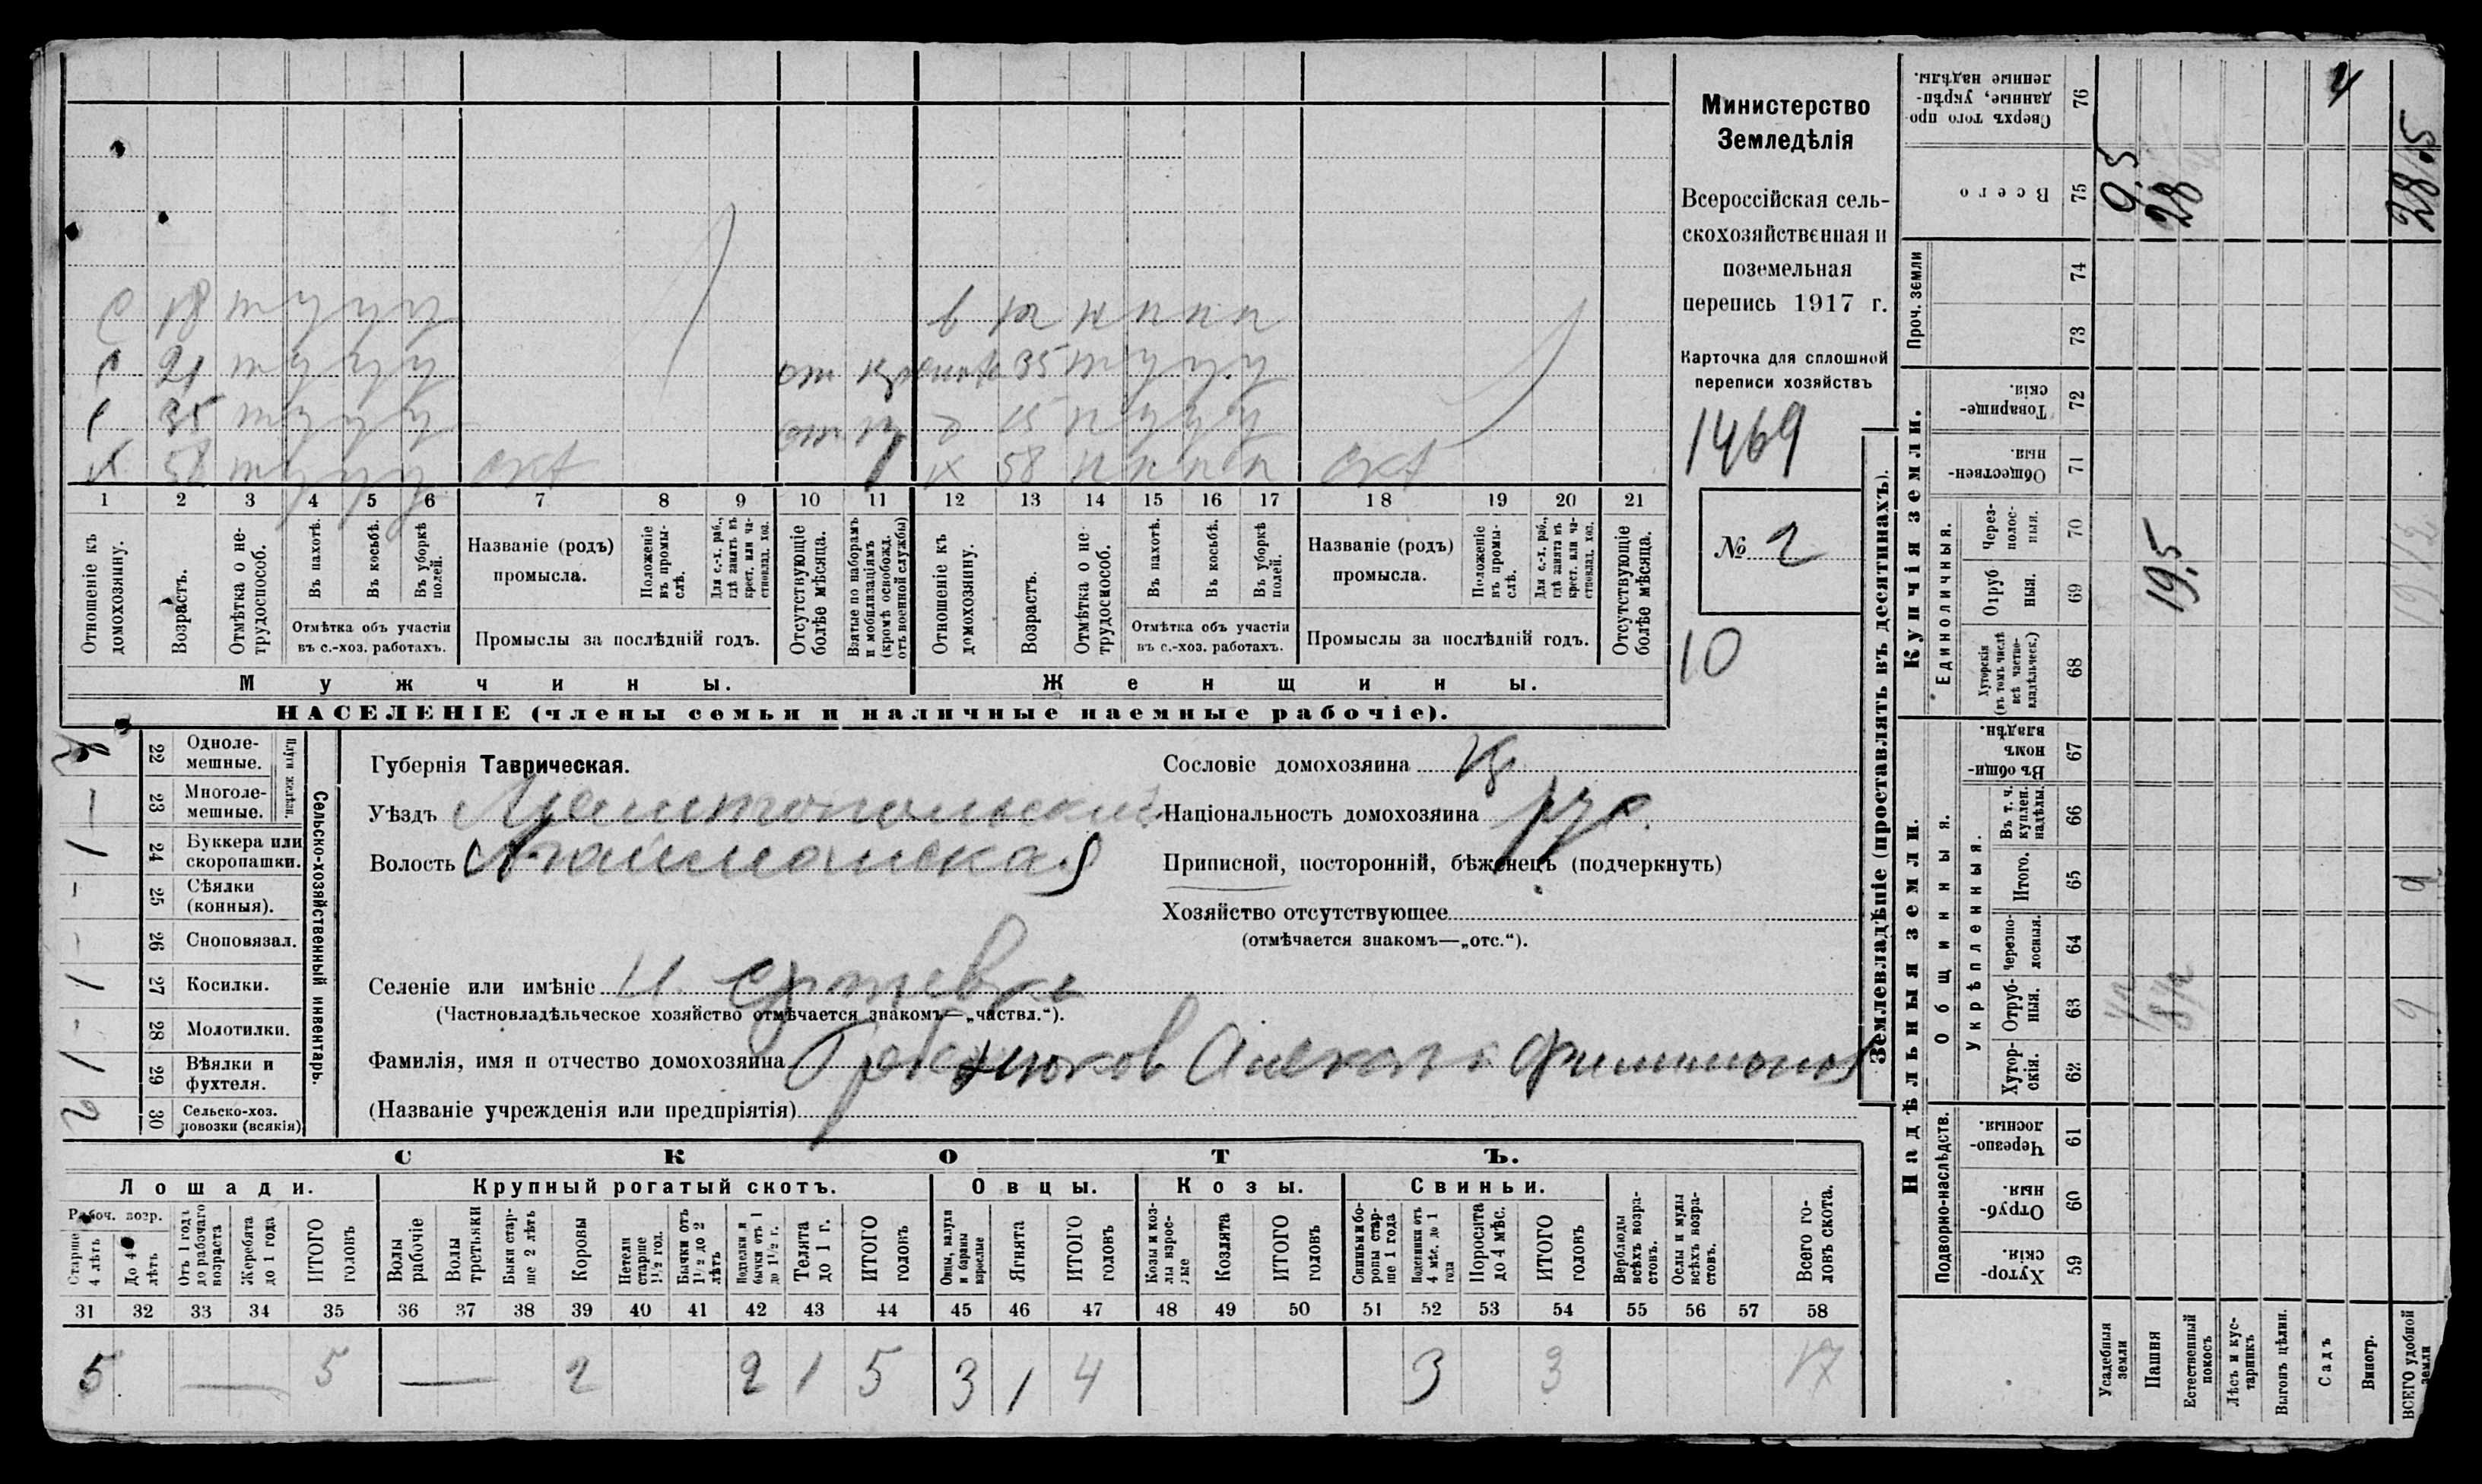 Министерство
Земледѣлія
Всероссійская сель-
скохозяйственная и
поземельная
перепись 1917 г.
Карточка для сплошной
переписи хозяйствъ
1469
№ 2
10
С 18 т у у у
в 12 н н н н
С 21 т у у у
35 т у у у
35 т у у у
15 п у у у
х 58 т у у у скт
х 58 н н н н скт
1 2 3 4 5 6 7 8 9 10 11 12 13 14 15 16 17 18 19 20 21
Отношеніе къ домохозяину.
Возрастъ.
Отмѣтка о не-трудоспособ.
Въ пахотѣ.
Въ косьбѣ.
Въ уборкѣ полей.
Отмѣтка объ участіи
въ с.-хоз. работахъ.
Названіе (родъ)
промысла.
Положеніе въ промы-слѣ.
Для с.-х. раб., гдѣ занятъ въ крест. или ча-стновлад. хоз.
Промыслы за послѣдній годъ.
Отсутствующіе болѣе мѣсяца.
Взятые по наборамъ и мобилизаціямъ (кромѣ освобожд. отъ военной службы)
Отношеніе къ домохозяину.
Возрастъ.
Отмѣтка о не трудоспособ.
Въ пахотѣ.
Въ косьбѣ.
Въ уборкѣ полей.
Отмѣтка объ участіи
въ с.-хоз. работахъ.
Названіе (родъ)
промысла.
Положеніе въ промы-слѣ.
Для с.-х. раб., гдѣ занята въ крест. или ча-стновлад. хоз.
Промыслы за послѣдній годъ.
Отсутствующіе болѣе мѣсяца.
Мужчины.
Женщины.
НАСЕЛЕНІЕ (члены семьи и наличные наемные рабочіе).
22 Одноле-мешные.
— 23 Многоле-мешные.
Плуги желѣзн.
1 24 Буккера или скоропашки.
- 25 Сѣялки (конныя).
- 26 Сноповязал.
1 27 Косилки.
- 28 Молотилки.
1 29 Вѣялки и фухтеля.
2 30 Сельско-хоз. повозки (всякія)
Сельско-хозяйственный инвентарь.
Губернія Таврическая.
Уѣздъ Мелитопольскій
Волость
Селеніе или имѣніе
(Частновладѣльческое хозяйство отмѣчается знакомъ—„частвл.“).
Фамилія, имя и отчество домохозяина
(Названіе учрежденія или предпріятія)
Сословіе домохозяина кр
Національность домохозяина рус.
Приписной, посторонній, бѣженецъ (подчеркнуть)
Хозяйство отсутствующее
(отмѣчается знакомъ—„отс.“).
СКОТЪ.
Лошади. Крупный рогатый скотъ. Овцы. Козы. Свиньи.
Рабоч. возр.
Старше 4 лѣтъ
До 4 лѣтъ
Отъ 1 года до рабочаго возраста
Жеребята до 1 года
ИТОГО головъ
Волы рабочіе
Волы третьяки
Быки стар-ше 2 лѣтъ
Коровы
Нетели старше 1½ год.
Бычки отъ 1½ до 2 лѣтъ
Подтелки и бычки отъ 1 до 1½ г.
Телята до 1 г.
ИТОГО головъ
Овцы, валухи и бараны взрослые
Ягнята
ИТОГО головъ
Козы и коз-лы взрос-лые
Козлята
ИТОГО головъ
Свиньи и бо-ровы стар-ше 1 года
Подсвинки отъ 4 мѣс. до 1 года
Поросята до 4 мѣс.
ИТОГО головъ
Верблюды всѣхъ возра-стовъ.
Ослы и мулы всѣхъ возра-стовъ.
Всего го-ловъ скота.
31 32 33 34 35 36 37 38 39 40 41 42 43 44 45 46 47 48 49 50 51 52 53 54 55 56 57 58
5 — 5 — 2 2 1 5 3 1 4 3 3 17
Землевладѣніе (проставлять въ десятинахъ).
Надѣльныя земли.
Купчія земли.
Проч. земли
Подворно-наслѣдств.
Общинныя.
Укрѣпленныя.
Единоличныя.
Сверхъ того про-данные, укрѣп-ленные надѣлы. 76 4
Всего 75 9,5 28 28,5
74
73
Товарище-скія. 72
Обществен-ныя. 71
Через-полос-ныя. 70
Отруб ныя. 69 19,5 19 1/2
Хуторскія (въ томъ числѣ всѣ частно-владѣльческ.) 68
Въ общи-номъ владѣн. 67
Въ т. ч. куплен. надѣлы. 66
Итого. 65 9
Черезпо-лосныя. 64
Отруб-ныя. 63 1/2 8 1/2 9
Хутор-скія. 62
Черезпо-лосныя. 61
Отруб-ныя. 60
Хутор-скія. 59
Усадебныя земли
Пашня
Естественный покосъ
Лѣсъ и кус-тарникъ
Выгонъ цѣлин.
Садъ
Виногр.
ВСЕГО удобной земли